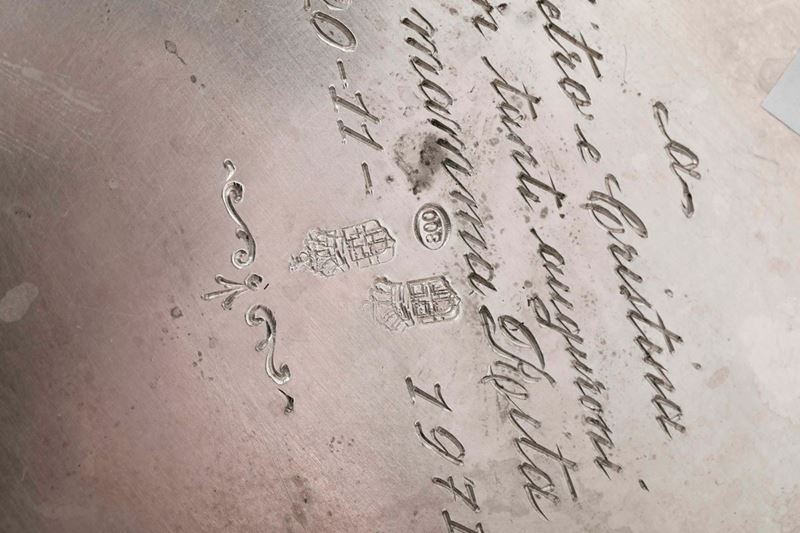 A
ietro e Cristina
n tanti auguroni.
mamma Rosita
0-11- 1971
800